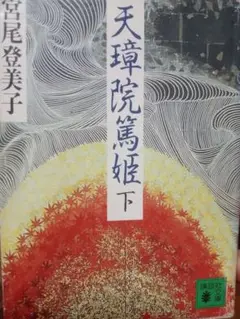 宮尾登美子
天璋院篤姫
下
講談社
文庫